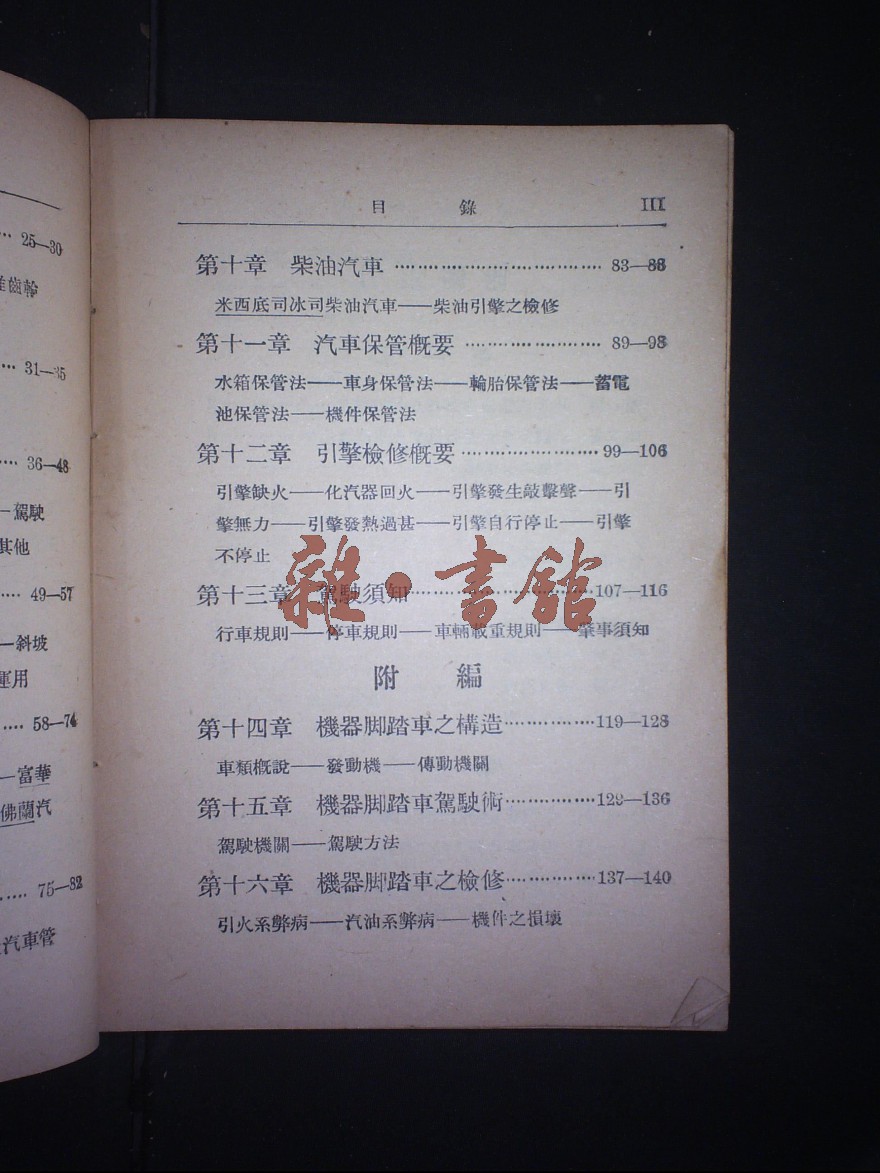 25—30
31—35
36—48
駕駛
其他
49—57
斜坡
運用
58—74
富華
佛蘭汽
75—82
汽車管
目 錄 III
第十章 柴油汽車 ………………………… 83—88
米西底司冰司柴油汽車——柴油引擎之檢修
第十一章 汽車保管概要 …………………… 89—98
水箱保管法——車身保管法——輪胎保管法——蓄電
池保管法——機件保管法
第十二章 引擎檢修概要 …………………… 99—106
引擎缺火——化汽器回火——引擎發生敲擊聲——引
擎無力——引擎發熱過甚——引擎自行停止——引擎
不停止
第十三章 駕駛須知 ………………………… 107—116
行車規則——停車規則——車輛載重規則——肇事須知
雜·書館
附 編
第十四章 機器脚踏車之構造 …………… 119—128
車類概說——發動機——傳動機關
第十五章 機器脚踏車駕駛術 …………… 129—136
駕駛機關——駕駛方法
第十六章 機器脚踏車之檢修 …………… 137—140
引火系弊病——汽油系弊病——機件之損壞